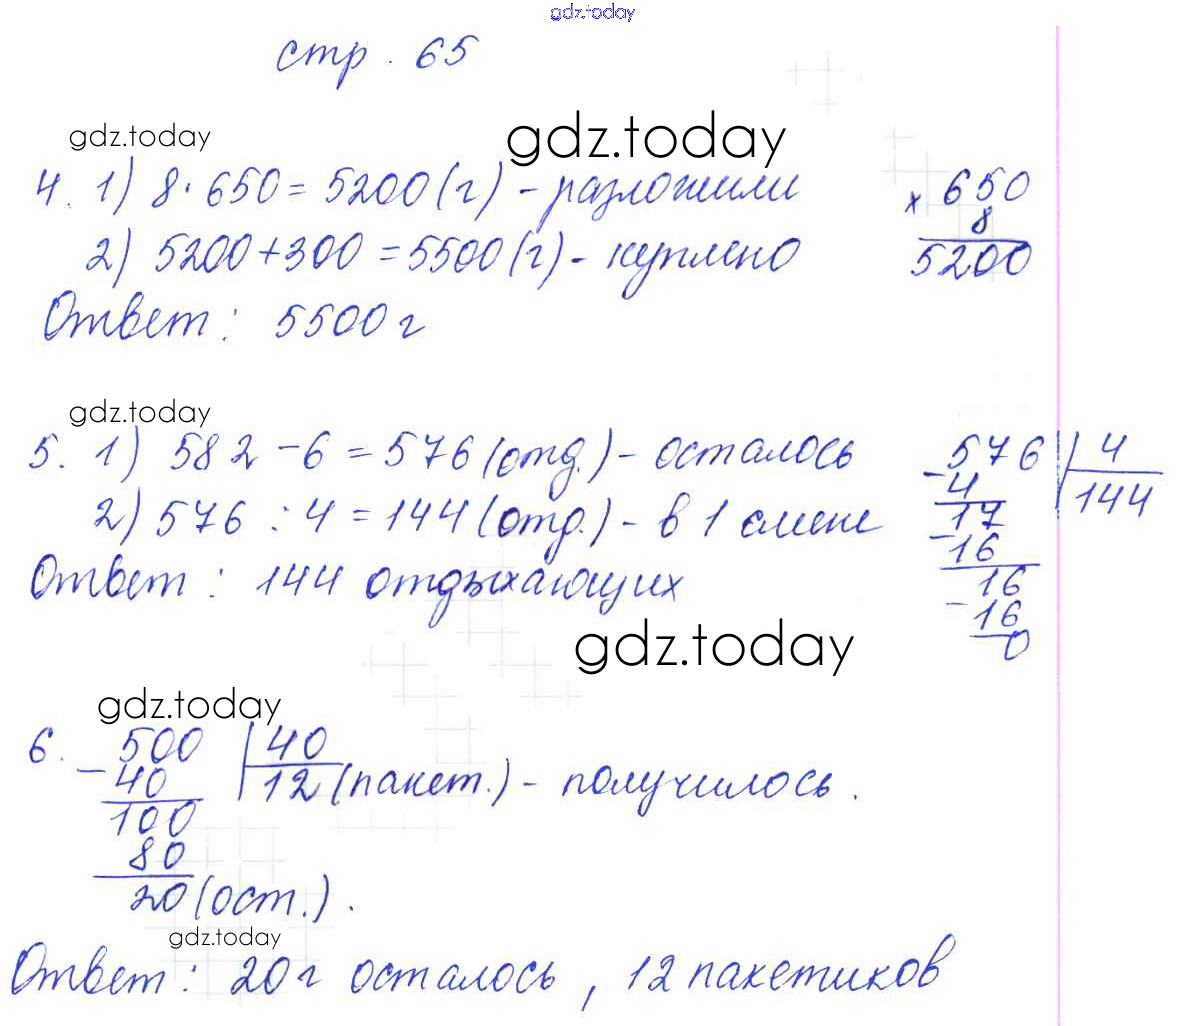 gdz.today
стр. 65
gdz.today
gdz.today
4. 1) 8 · 650 = 5200 (г) - разложили
2) 5200 + 300 = 5500 (г) - куплено
Ответ: 5500 г
× 650
8
5200
gdz.today
5. 1) 582 - 6 = 576 (отд.) - осталось
2) 576 : 4 = 144 (отд.) - в 1 смене
Ответ: 144 отдыхающих
576 | 4
- 4 144
17
- 16
16
- 16
0
gdz.today
gdz.today
6. 500 | 40
- 40 12 (пакет.) - получилось.
100
80
20 (ост.).
gdz.today
Ответ: 20 г осталось, 12 пакетиков